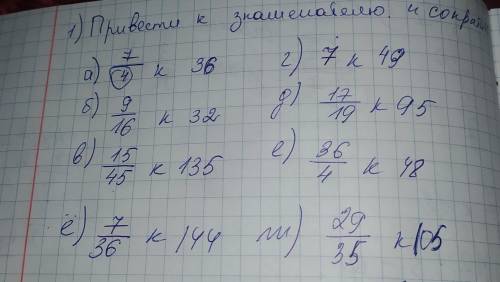 1) Привести к знаменателю. и
а) 7/4 к 36 г) 7 к 49
б) 9/16 к 32 д) 17/19 к 95
в) 15/45 к 135 е) 36/4 к 48
ё) 7/36 к 144 ж) 29/35 к 105